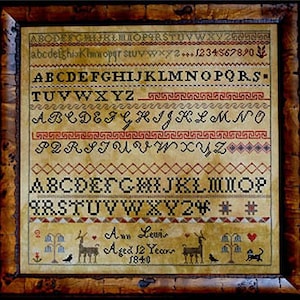 ABCDEFGHIJKLMNOPQRSTUVWXYZ
abcdefghijklmnopqrstuvwxyz 1234567890
ABCDEFGHIJKLMNOPQRS
TUVWXYZ
ABCDEFGHIJKLMNO
PQRSTUVWXYZ
ABCDEFGHIJKLMNOP
QRSTUVWXYZ
Ann Lewis
Aged 12 Years
1840